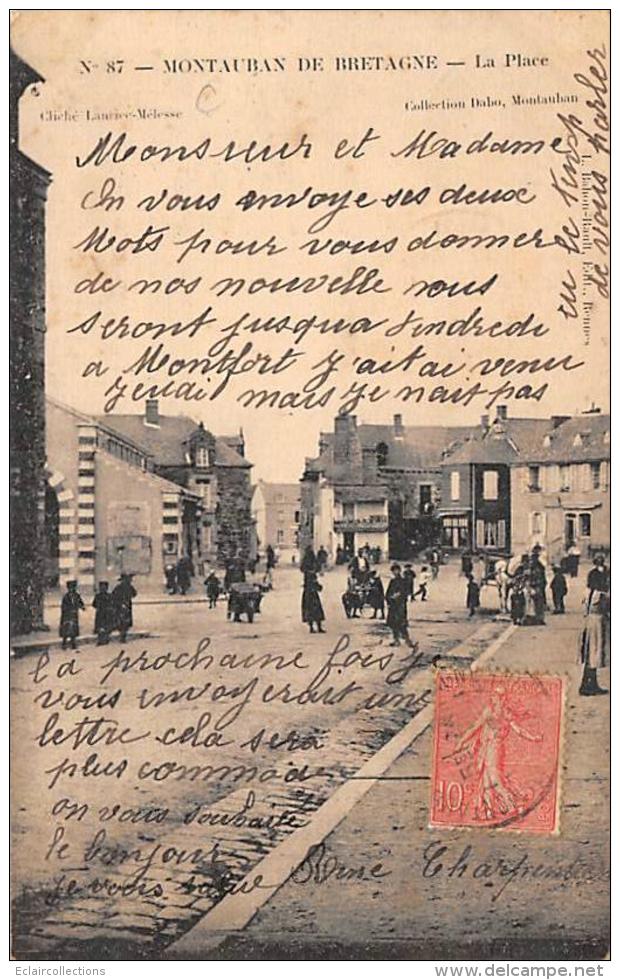 N° 87 — MONTAUBAN DE BRETAGNE — La Place
Cliché Laurice-Mélesse
Collection Dabo, Montauban
Monsieur et Madame
On vous envoye ses deux
Mots pour vous donnere
de nos nouvelle nous
seront jusqua vendredi
a Montfort j'ait ai venu
jeudi mais je nait pas
eu le temp
de vous parler
la prochaine fois je
vous envoyerait une
lettre cela sera
plus commode
on vous souhaite
le bonjour
je vous salue
Rene Charpentier
10c
Eclaircollections
www.delcampe.net